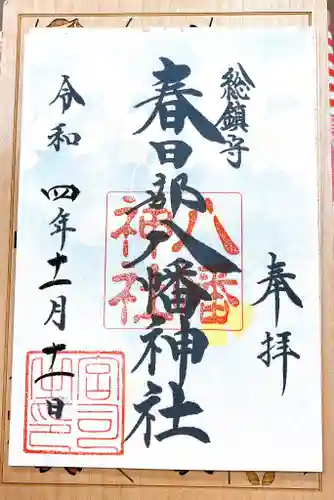 奉拝
総鎮守
春日部八幡神社
八幡
神社
令和四年十一月十一日
宮司之印